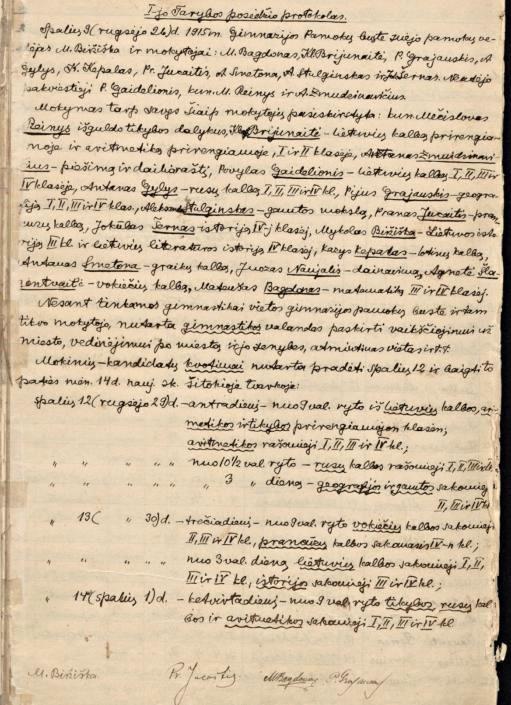 I-jo Tarybos posėdžio protokolas.
Spalių 9 (rugsėjo 26) d. 1915 m. Gimnazijos Pamokų buste suėjo pamokų ve-
dėjas M. Biržiška ir mokytojai: M. Bagdonas, Brijunaitė, P. Grajauskis, A
Gylys, K. Kepalas, Pr. Jucaitis, A Smetona, A. Stulginskas ir J. Šernas. Neatėjo
pakviestieji P. Gaidelionis, kun. M. Reinys ir A. Žmuidzinavičius
Mokymas tarp savęs šiaip mokytojų pasiskirstyta: kun. Mečislovas
Reinys išguldo tikybos dalykus, Brijunaitė – lietuvių kalbą prirengia-
moje ir aritmetiką prirengiamoje, I ir II klasėje, Antanas Žmuidzinavi-
čius – piešimą ir dailiaraštį, Povylas Gaidelionis – lietuvių kalbą I, II, III ir
IV klasėje, Antanas Gylys – rusų kalbą I, II, III ir IV kl., Pijus Grajauskis – geogra-
fiją I, II, III ir IV klas., Aleksandras Stulginskas – gamtos mokslą, Pranas Jucaitis – pran-
cuzų kalbą, Jokūbas Šernas istoriją IV-j klasėj, Mykolas Biržiška – Lietuvos isto-
riją III kl. ir lietuvių literatūros istoriją IV klasėj, Kazys Kepalas – lotynų kalbą,
Antanas Smetona – graikų kalbą, Juozas Naujalis – dainavimą, Agnetė Šla-
pontvaitė – vokiečių kalbą, Mataušas Bagdonas – matematiką III ir IV klasėj.
Nesant tinkamos gimnastikai vietos gimnazijos pamokų buste ir tam
tikro mokytojo, nutarta gimnastikos valandas paskirti vaikščiojimui už
miesto, vedinėjimui po miestą ir jo žemybes, atmintinas vietas ir t.t.
Mokinių-kandidatų kvotimai nutarta pradėti spalių 12 ir baigti to
paties mėn. 14 d. nauj. sk. šitokioje tvarkoje:
spalių 12 (rugsėjo 29) d. – antradienį – nuo 9 val. ryto iš lietuvių kalbos, ari-
metikos ir tikybos prirengiamojon klasėn;
aritmetikos rašomieji I, II, III ir IV kl.;
" " " " – nuo 10½ val. ryto – rusų kalbos rašomieji I, II, III ir IV
" " " " " 3 " dieną – geografijos ir gamtos sakomieji
II, III ir IV kl
" 13 ( " 30) d. – trečiadienį – nuo 9 val. ryto vokiečių kalbos sakomieji
II, III ir IV kl., prancuzų kalbos sakomasis IV-n kl.;
" " " " nuo 3 val. dieną lietuvių kalbos sakomieji I, II,
III ir IV kl., istorijos sakomieji III ir IV kl.;
" 14 (spalių 1) d. – ketvirtadienį – nuo 9 val. ryto tikybos, rusų kal-
bos ir aritmetikos sakomieji I, II, III ir IV kl
M. Biržiška Pr. Jucaitis M Bagdonas P. Grajauskis